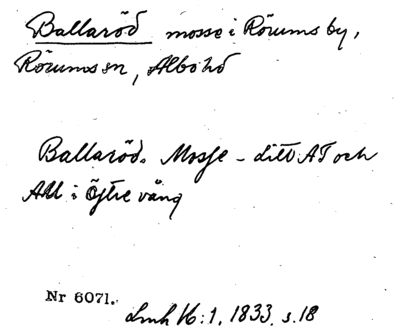 Balleröd mosse i Rörums by,
Rörums sn, Albo hd
Balleröd. Mosse - litt AT och
AU i Östre väng
Nr 6071.
Lmh 16:1, 1833, s. 18